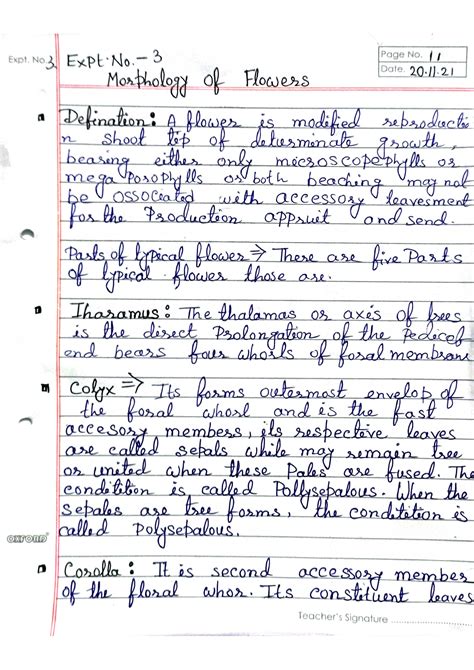 Expt. No. 3 Expt. No. - 3 Page No. 11
Morphology of Flowers Date. 20.11.21
Defination: A flower is modified reproductio
n shoot tip of determinate growth,
bearing either only microscopephylls or
mega Porophylls or both beaching may not
be ossocated with accessory leavesment
for the Production appruit and send.
Parts of typical flower ⇒ There are five Parts
of typical flower those are.
Tharamus: The thalamas or axes of frees
is the direct Prolongation of the Pedicof
end bears four whorls of foral membrans
Colyx ⇒ Its forms outermost envelop of
the foral whorl and is the fast
accesory members, its respective leaves
are called sepals while may remain tree
or united when these Pales are fused. The
condition is called Pollysepalous. When the
sepales are tree forms, the condetition is
called Polysepalous.
Corolla: It is second accessory member
of the floral whor. Its constituent leaves
Teacher's Signature